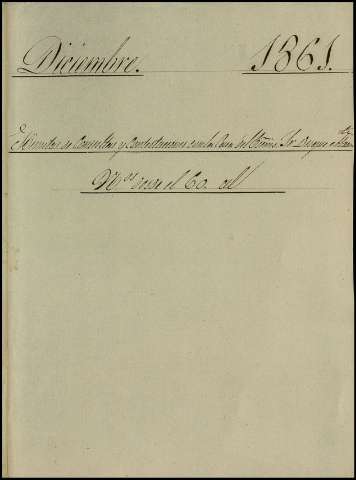 Diciembre. 1861.
Minutas de Consultas y Contestaciones con la Casa del Excmo. Sr. Duque de
Nos. desde el 60. al